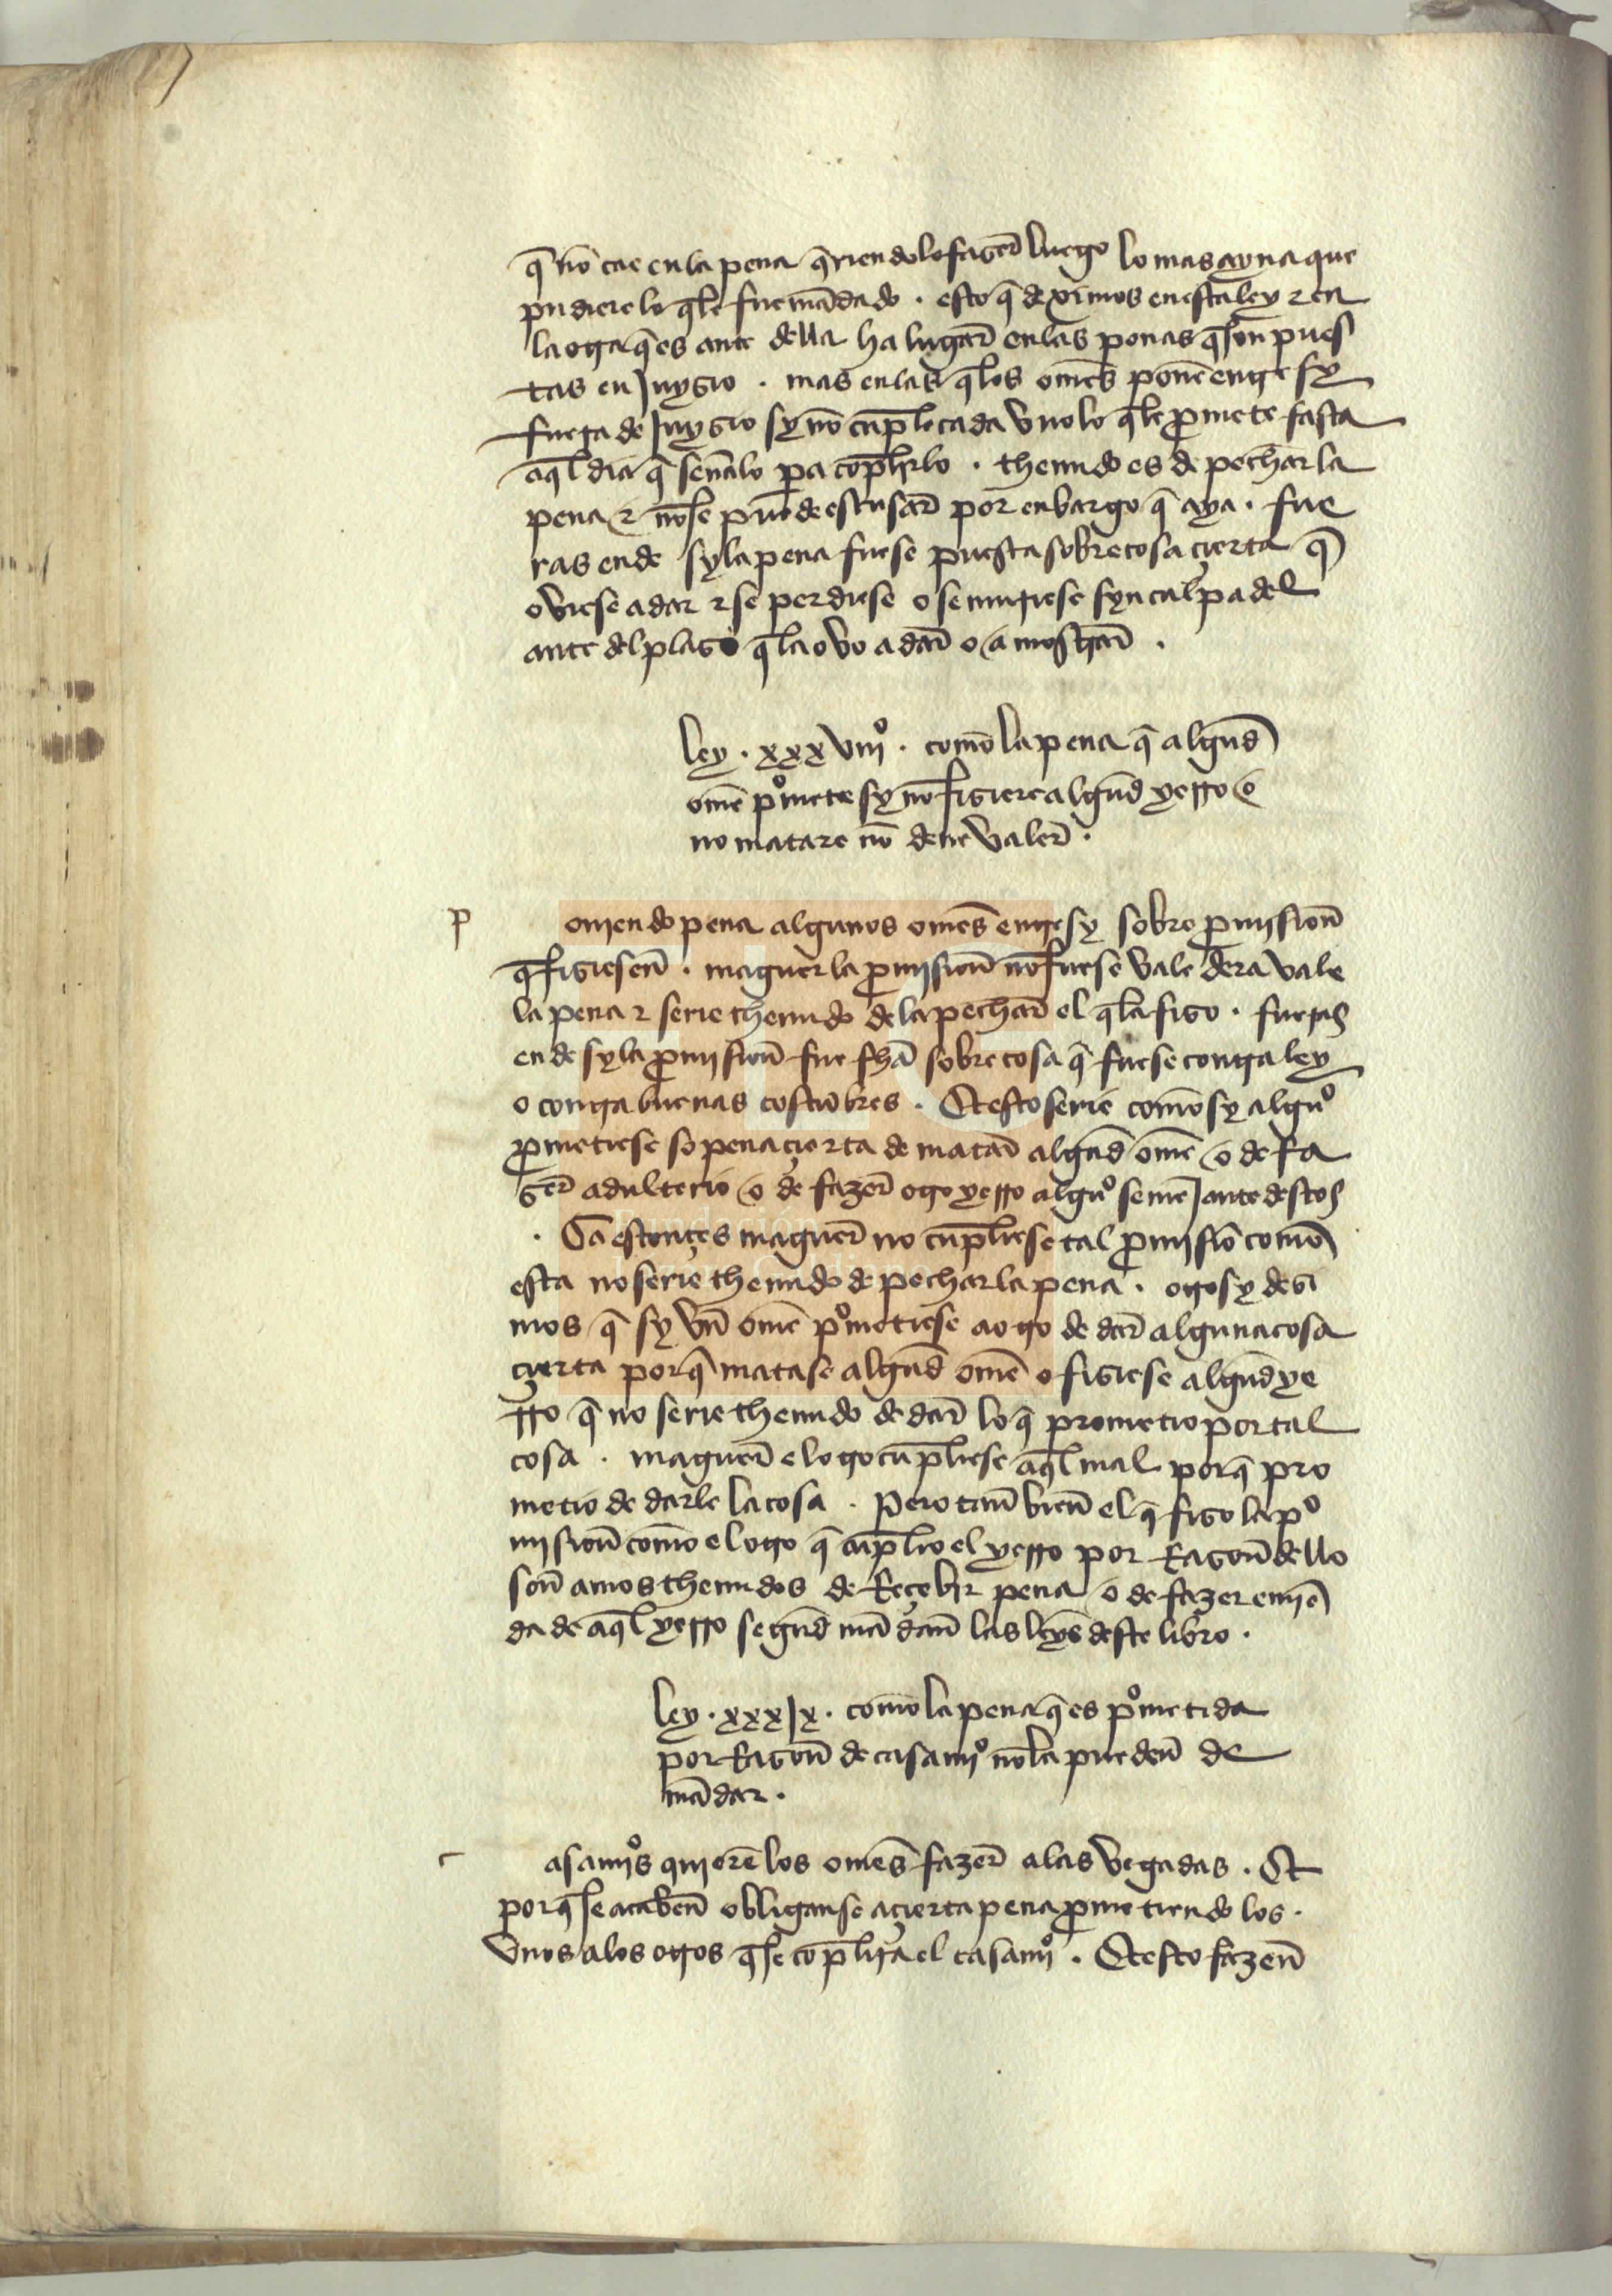 q̃ nõ cae en la pena q̃riendo lo faserẽ luego lo mas ayna que
pudiere lo q̃ le fue mãdado . esto q̃ deximos en esta ley ⁊ en
la otra q̃ es ante della ha lugar̃ en las penas q̃ son pues
tas en juysio . mas en las q̃ los om̃es ponẽ entre sy
fuera de juysio sy nõ cũple cada vno lo q̃ le promete fasta
aq̃l dia q̃ señalo pa cõplirlo . thenudo es de pechar la
pena ⁊ nõ se puede escusar̃ por enbargo q̃ aya . fue
ras ende sy la pena fuese puesta sobre cosa çierta q̃
oviese a dar ⁊ se perdiese o se muriese syn culpa del
ante del plaso q̃ la ovo a dar̃ o a mostrar̃ .
ley . xxxviijº . como la pena q̃ algund̃
om̃e pºmete sy nõ fisiere algũd yerro o
no matare nõ deue valer̃ .
p oniendo pena algunos om̃es entre sy sobre promisioñ
q̃ fisieseñ . maguer la promisioñ nõ fuese valedera vale
la pena ⁊ serie thenudo de la pechar̃ el q̃ la fiso . fueras
ende sy la promisioñ fue fha sobre cosa q̃ fuese contra ley
o contra buenas costũbres . Et esto serie como sy algũº
prometiese so pena çierta de matar̃ algũd om̃e o de fa
ser̃ adulterio o de fazer̃ otro yerro algũº semejante destos
. Ca estonçes maguer̃ no cũpliese tal promisiõ como
esta no serie thenudo de pechar la pena . otrosy desi
mos q̃ sy vñ om̃e pºmetiese a otro de dar̃ alguna cosa
çierta porq̃ matase algũd om̃e o fisiese algũd ye
rro q̃ no serie thenudo de dar̃ lo q̃ prometio por tal
cosa . maguer̃ el otro cũpliese aq̃l mal porq̃ pro
metio de darle la cosa . Pero tan̄ bien̄ el q̃ fiso la pº
mision̄ como el otro q̃ cũplio el yerro por Rason̄ dello
son̄ amos thenudos de Reçebir pena o de fazer emiẽ
da de aq̃l yerro segũd mãdan̄ las leyes deste libro .
ley . xxxjx . como la pena q̃ es pºmetida
por Rason̄ de casamiº nõ la pueden̄ de
mãdar .
c asamiºs quierẽ los om̃es fazer̃ a las vegadas . Et
porq̃ se acaben̄ obliganse a çierta pena prometiendo los .
vnos a los otros q̃ se cõplira el casamiº . Et esto fazen̄